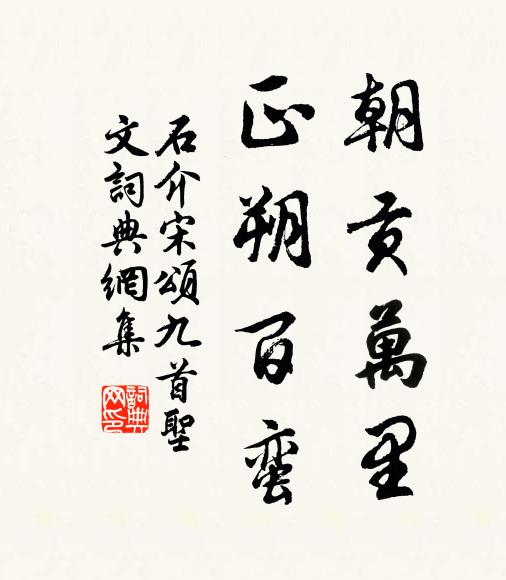 朝貢萬里
正朔百蛮
石介宋頌九首聖
文詞典網集
詞典
网印